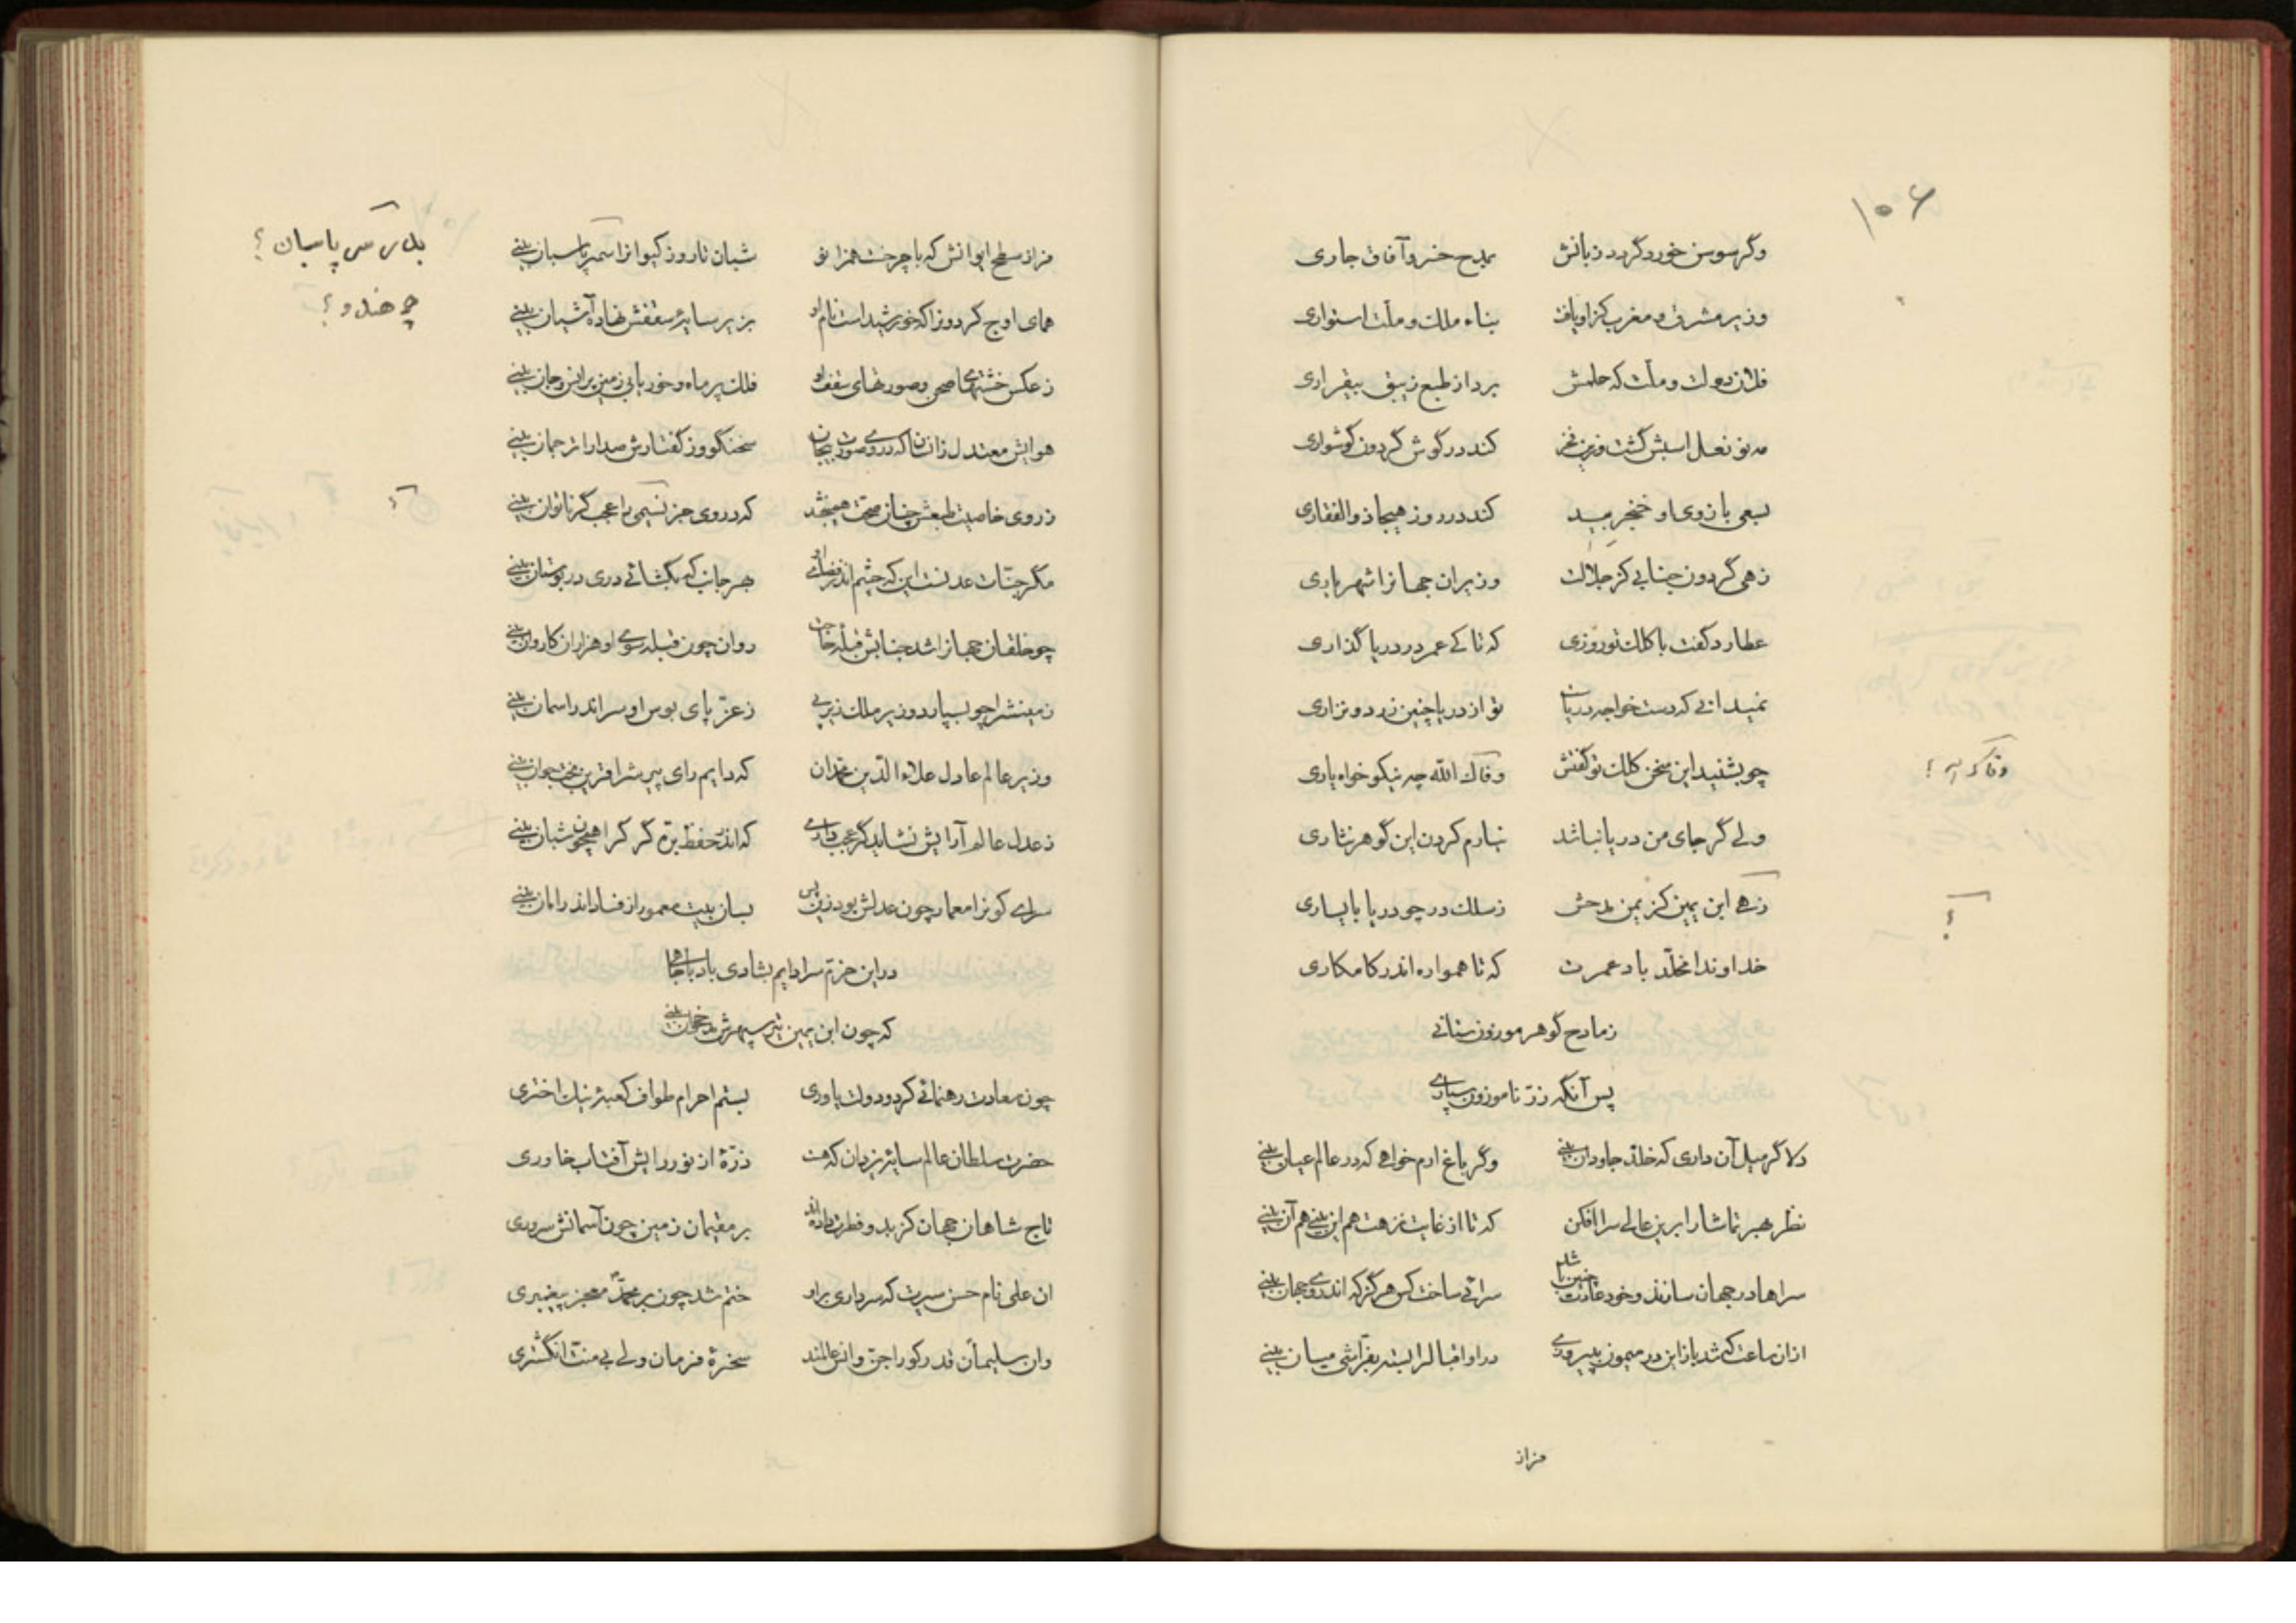 ۱۰۶
وگر سوسن خورد گردد زبانش بمدح خسرو آفاق جاری
وزیر مشرق و مغرب کزاو یافت بناء ملک و ملت استواری
دولت و ملت که حلمش برد از طبع زیبق بیقراری
مه نو نعل اسبش گشت وزین فخر کند در گوش گردون گوشواری
بسعی بازوی او خنجر بید کند در روز هیجا ذوالفقاری
زهی گردون جنابی کز جلالت وزیران جهانرا شهریاری
عطارد گفت با کلک تو روزی که تا کے عمر در دریا گذاری
نمیدانی که دست خواجه دریاست تو از دریا چنین زرد و نزاری
چو بشنید این سخن کلک تو گفتش وقاک الله چه نیکو خواه یاری
وقاک اله ؟
ولے گر جای من دریا نباشد نیارم کردن این گوهر نثاری
زهے ابن یمین کز یمن مدحش ز سلک در چو دریا با یساری
؟
خداوندا مخلّد باد عمرت که تا همواره اندر کامکاری
ز مادح گوهر موزون ستانی
پس آنگه زرّ ناموزون سپاری
دلا گر میل آن داری که خلد جاودان بینی وگر باغ ارم خواهی که در عالم عیان بینی
نظر بهر تماشا را برین عالی سرا افکن که تا از غایت نزهت هم این بینی هم آن بینی
سراها در جهان سازند و خود عادت چنین باشد سرائی ساخت کس هرگز که اندروی جهان بینی
ازان ساعت که شد باز این در میمون بپیروزی در او اقبال را بسته بفرّاشی میان بینی
فراز
فراز سطح ایوانش که با چرخست همزانو شبان تا روز کیوانرا اسمر پاسبان بینی
پاسبان ؟
همای اوج گردونرا که خورشید است نام او بزیر سایهٔ سقفش نهاده آشیان بینی
چو هندو ؟
ز عکس خشتهای صحن و صورتهای سقف او فلک پر ماه و خور یابی زمین پر انس و جان بینی
هوایش معتدل زانسان که در وی صورت بیجان سخنگو وز گفتارش صدا را ترجمان بینی
ز روی خاصیت طبعش چنان صحت همیبخشد که در وی جز نسیمی را عجب گر ناتوان بینی
مگر جنّات عدنست این که چشم اندر فضای او بهر جانب که بگشائی دری در بوستان بینی
چو خلقان جهانرا شد جنابش قبلهٔ حاجت روان چون قبله سوی او هزاران کاروان بینی
زمینش را چو بسپارد وزیر ملک زیر پی ز عزّ پای بوس او سر اندر اسمان بینی
وزیر عالم عادل علاء الدّین محمد آن که دایم رای پیرش را قرین بخت جوان بینی
ز عدل عالم آرایش نشاید گر عجب داری که اندر حفظ برّه گرگ را همچون شبان بینی
سرای کونرا معمار چون عدلش بود زین پس بسان بیت معمور از فساد اندر امان بینی
در این خرّم سرا دایم بشادی باد با جاهی
که چون ابن یمین تیر سپهرش مدحخوان بینی
چون سعادت رهنمائی کرد و دولت یاوری بستم احرام طواف کعبهٔ نیک اختری
حضرت سلطان عالم سایهٔ یزدان که هست ذرّهٔ از نور رایش آفتاب خاوری
تاج شاهان جهان کز بدو فطرت داده‌اند بر مقیمان زمین چون آسمانش سروری
ان علی نام حسن سیرت که سرداری براو ختم شد چون بر محمّد معجز پیغمبری
وان سلیمان قدر کو را جنّ و انس عالمند سخرهٔ فرمان ولے بی منّت انگشتری